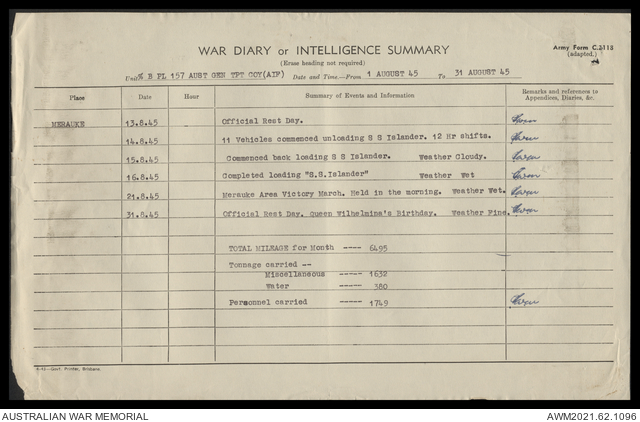 WAR DIARY or INTELLIGENCE SUMMARY
(Erase heading not required)
Army Form C.2118
(adapted.)
Unit B PL 157 AUST GEN TPT COY(AIF) Date and Time.—From 1 AUGUST 45 To 31 AUGUST 45
Place Date Hour Summary of Events and Information Remarks and references to Appendices, Diaries, &c.
MERAUKE 13.8.45 Official Rest Day.
14.8.45 11 Vehicles commenced unloading S S Islander. 12 Hr shifts.
15.8.45 Commenced back loading S S Islander. Weather Cloudy.
16.8.45 Completed loading "S.S.Islander" Weather Wet
21.8.45 Merauke Area Victory March. Held in the morning. Weather Wet.
31.8.45 Official Rest Day. queen Wilhelmina's Birthday. Weather Fine.
TOTAL MILEAGE for Month ---- 6495
Tonnage carried --
Miscellaneous ----- 1632
Water ----- 380
Personnel carried ----- 1749
Govt. Printer, Brisbane.
AUSTRALIAN WAR MEMORIAL
AWM2021.62.1096